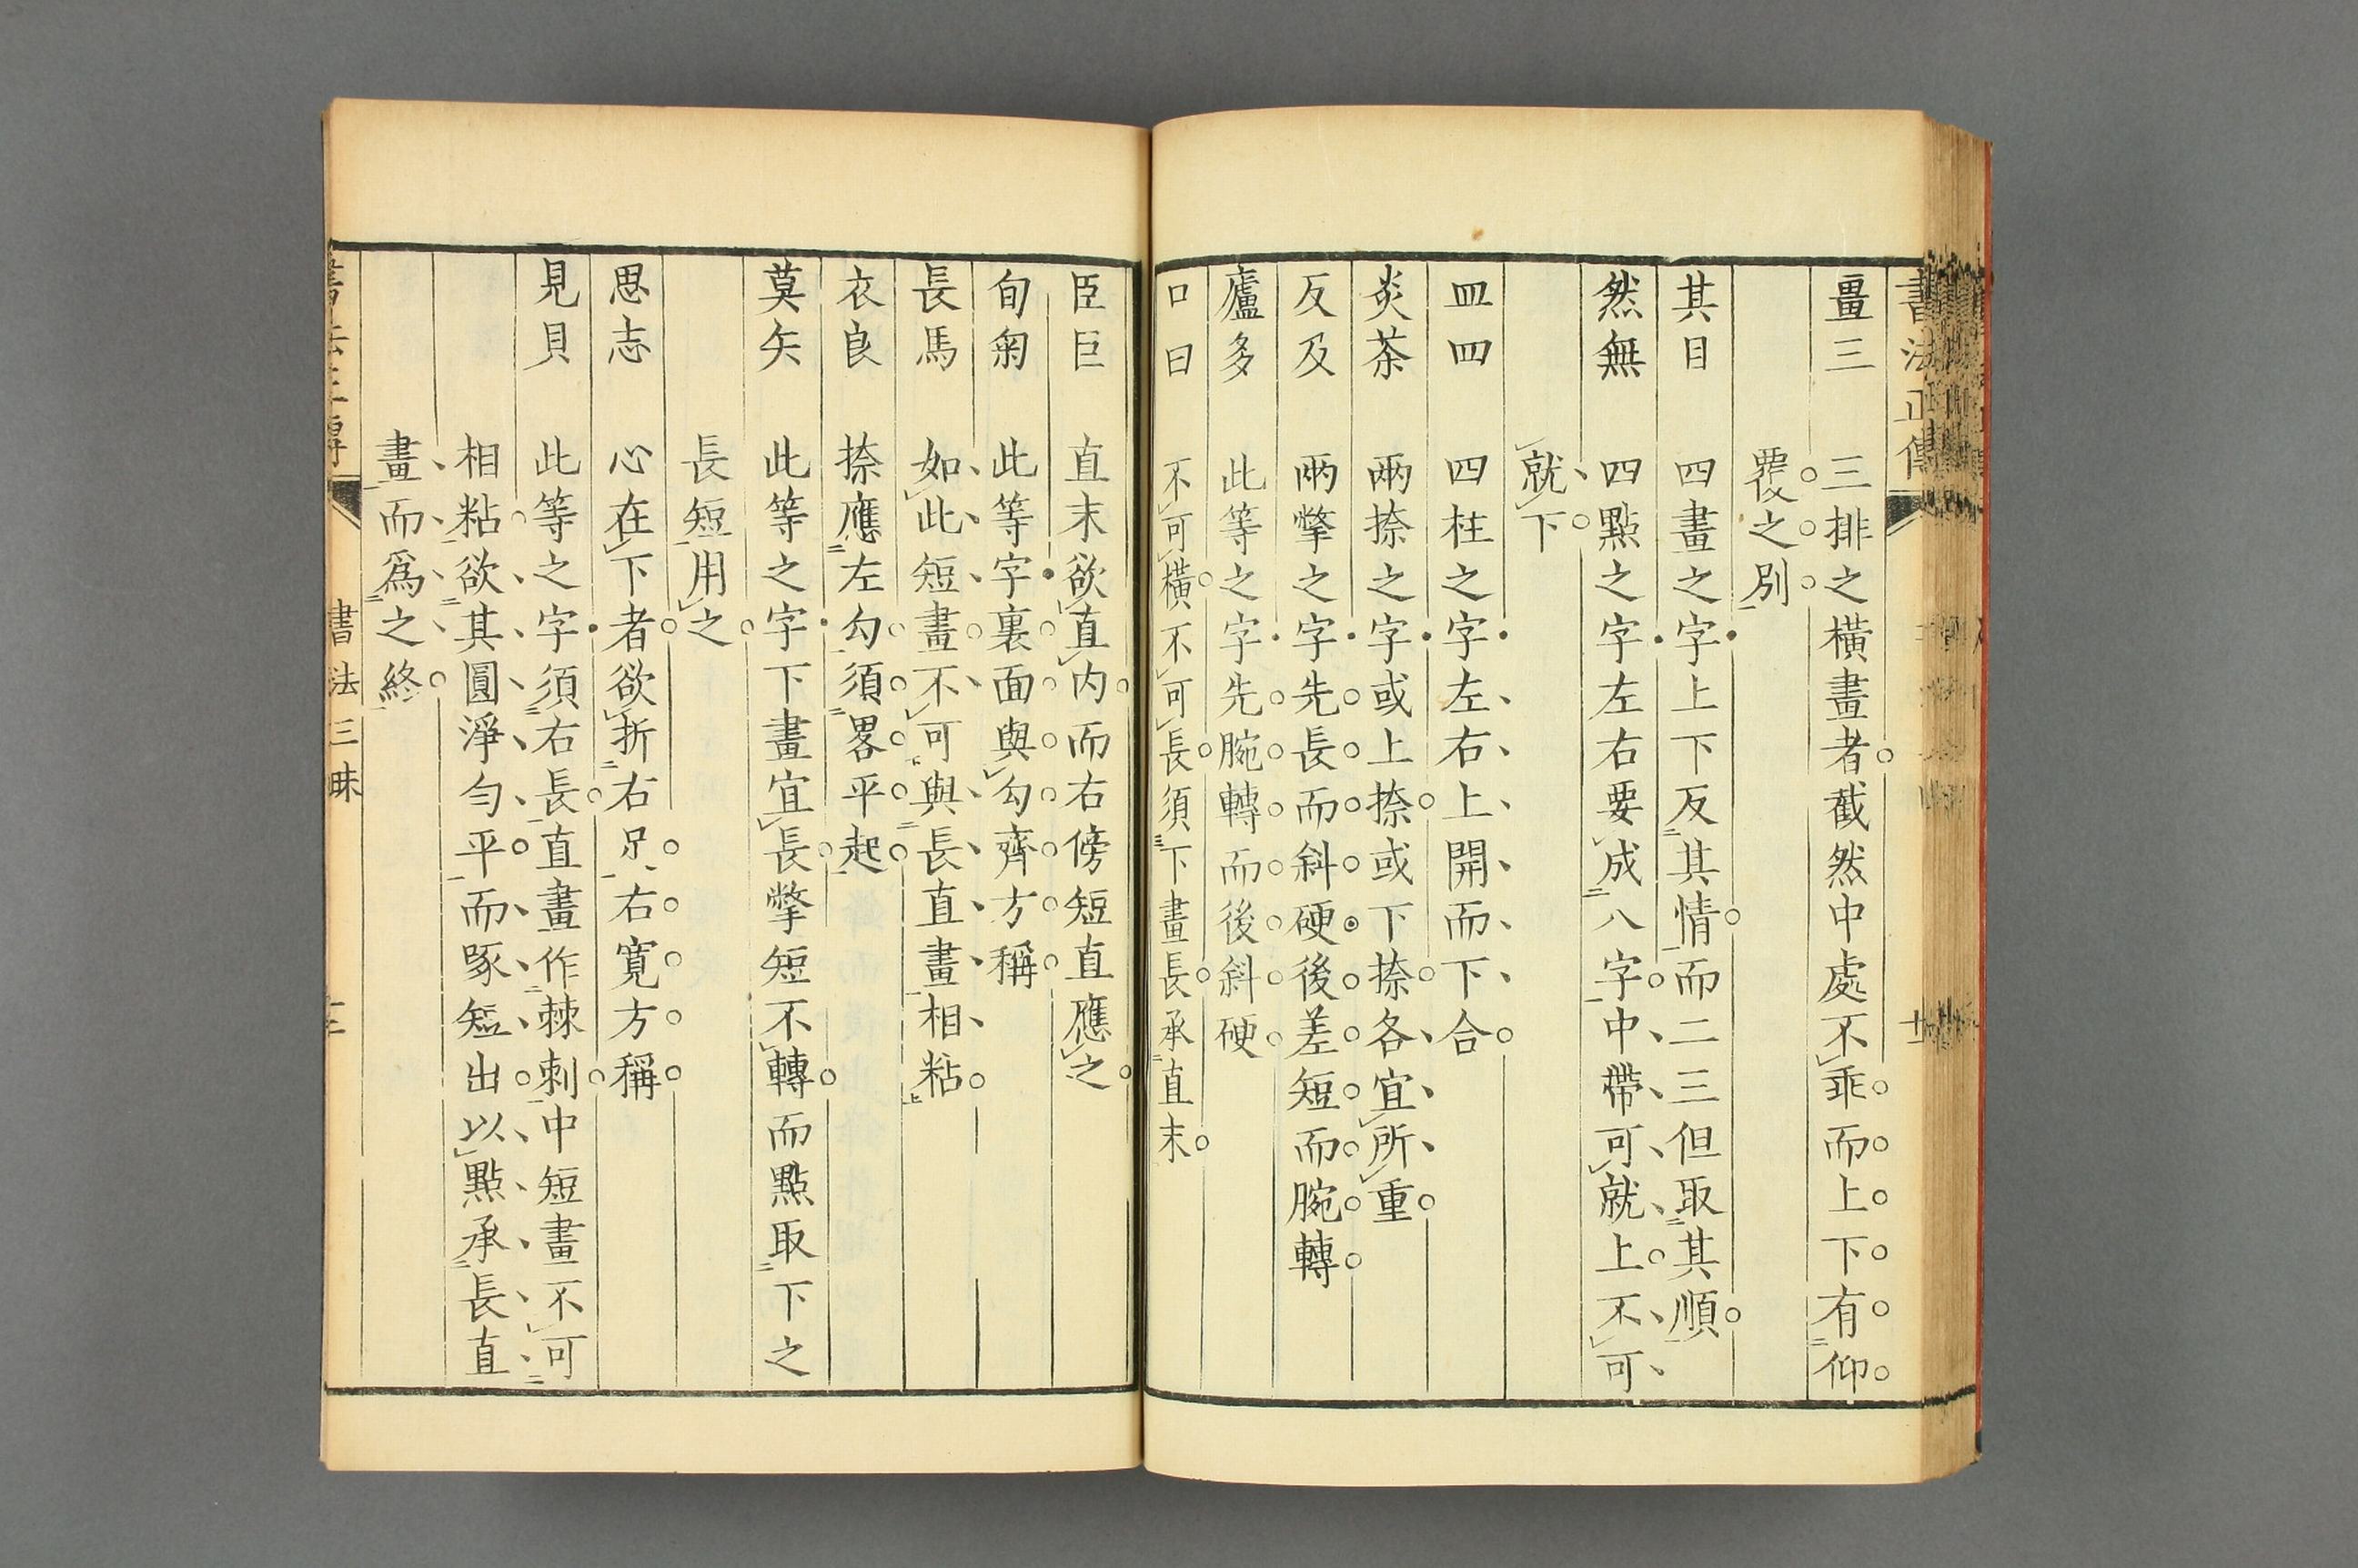 書法正傳
畺三 三排之橫畫者截然中處不乖而上下有仰
覆之別
其目 四畫之字上下反其情而二三但取其順
然無 四點之字左右要成八字中帶可就上不可
就下
皿四 四柱之字左右上開而下合
炎茶 兩捺之字或上捺或下捺各宜所重
反及 兩撆之字先長而斜硬後差短而腕轉
廬多 此等之字先腕轉而後斜硬
口曰 不可橫不可長須下畫長承直末
臣巨 直末欲直内而右傍短直應之
旬匊 此等字裏面與勾齊方稱
長馬 如此短畫不可與長直畫相粘
衣良 捺應左勾須畧平起
莫矢 此等之字下畫宜長撆短不轉而點取下之
長短用之
思志 心在下者欲折右右寬方稱
見貝 此等之字須右長直畫作棘刺中短畫不可
相粘欲其圓淨勻平而啄短出以點承長直
畫而爲之終
書法三昧